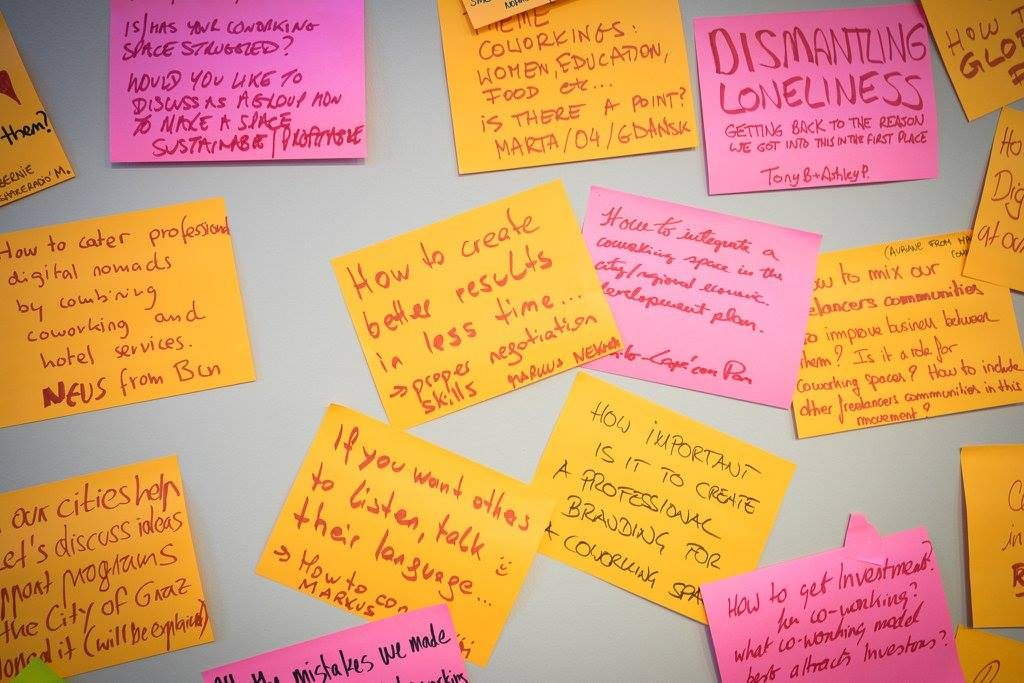 IS/HAS YOUR COWORKING
SPACE STRUGGLED?
WOULD YOU LIKE TO
DISCUSS AS A GROUP HOW
TO MAKE A SPACE
SUSTAINABLE/PROFITABLE
COWORKINGS:
WOMEN, EDUCATION,
FOOD etc...
IS THERE A POINT?
MARTA/04/GDAŃSK
DISMANTLING
LONELINESS
GETTING BACK TO THE REASON
WE GOT INTO THIS IN THE FIRST PLACE
Tony B + Ashley P.
HOW
them?
BERNIE
How to cater professional
digital nomads
by combining
coworking and
hotel services.
NEUS from Bcn
How to create
better results
in less time...
→ proper negotiation
skills MARKUS
How to integrate a
coworking space in the
city/regional economic
development plan.
(AURIANE FROM
to mix our
communities
to improve business between
them? Is it a role for
coworking spaces? How to include
other freelancers communities in this
movement?
our cities help
Let's discuss ideas
programs
the City of Graz
it (will be explained)
If you want others
to listen, talk
their language... :)
→ How to
MARKUS
HOW IMPORTANT
IS IT TO CREATE
A PROFESSIONAL
BRANDING FOR
A COWORKING
How to get Investment
for co-working?
what co-working model
best attracts Investors?
the mistakes we made